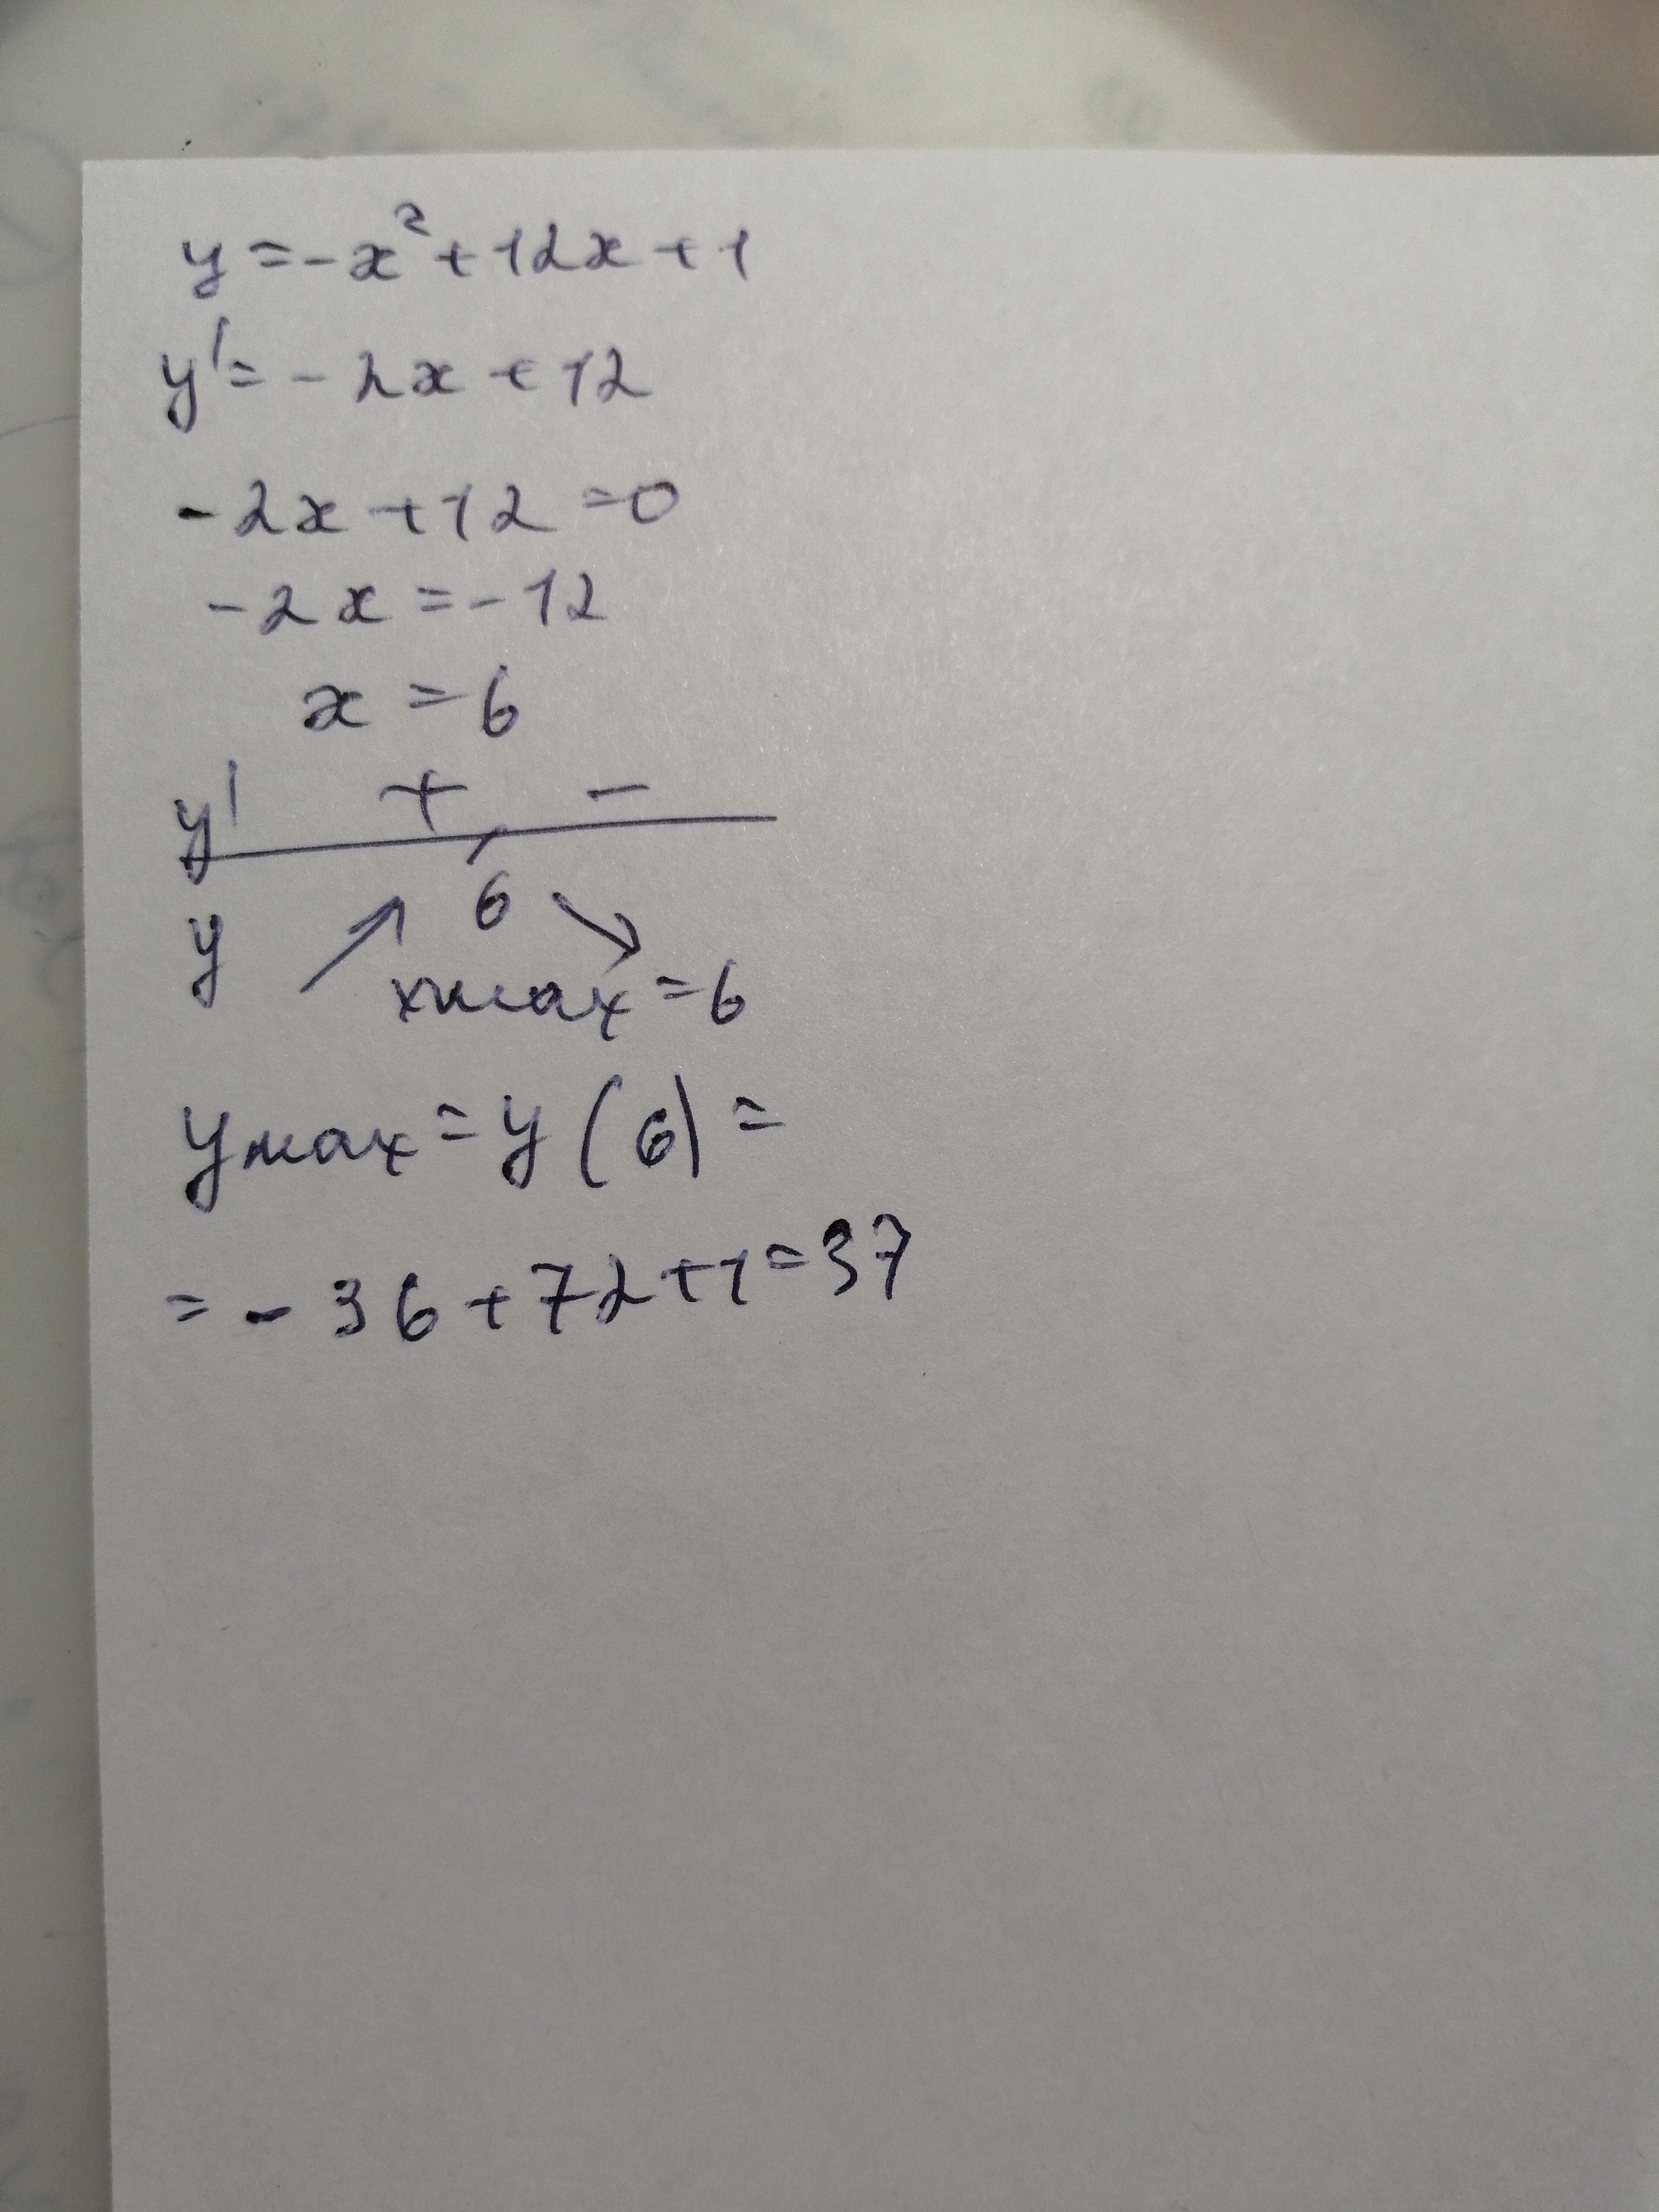 y = -x² + 12x + 1
y' = - 2x + 12
- 2x + 12 = 0
- 2x = - 12
x = 6
y' + -
6
y
xmax = 6
ymax = y (6) =
= - 36 + 72 + 1 = 37